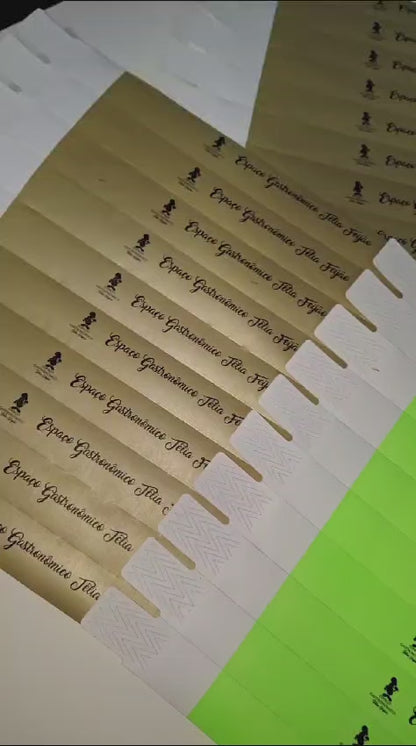 Espaço
Espaço
Espaço
Espaço
Espaço
Espaço
Espaço
Espaço Gastronômico Télia Feijão
Espaço Gastronômico Télia Feijão
Espaço Gastronômico Télia Feijão
Espaço Gastronômico Télia Feijão
Espaço Gastronômico Télia Feij
Espaço Gastronômico Télia Fei
Espaço Gastronômico Télia F
Espaço Gastronômico Télia
Espaço Gastronômico Télia
Gastronômico Télia